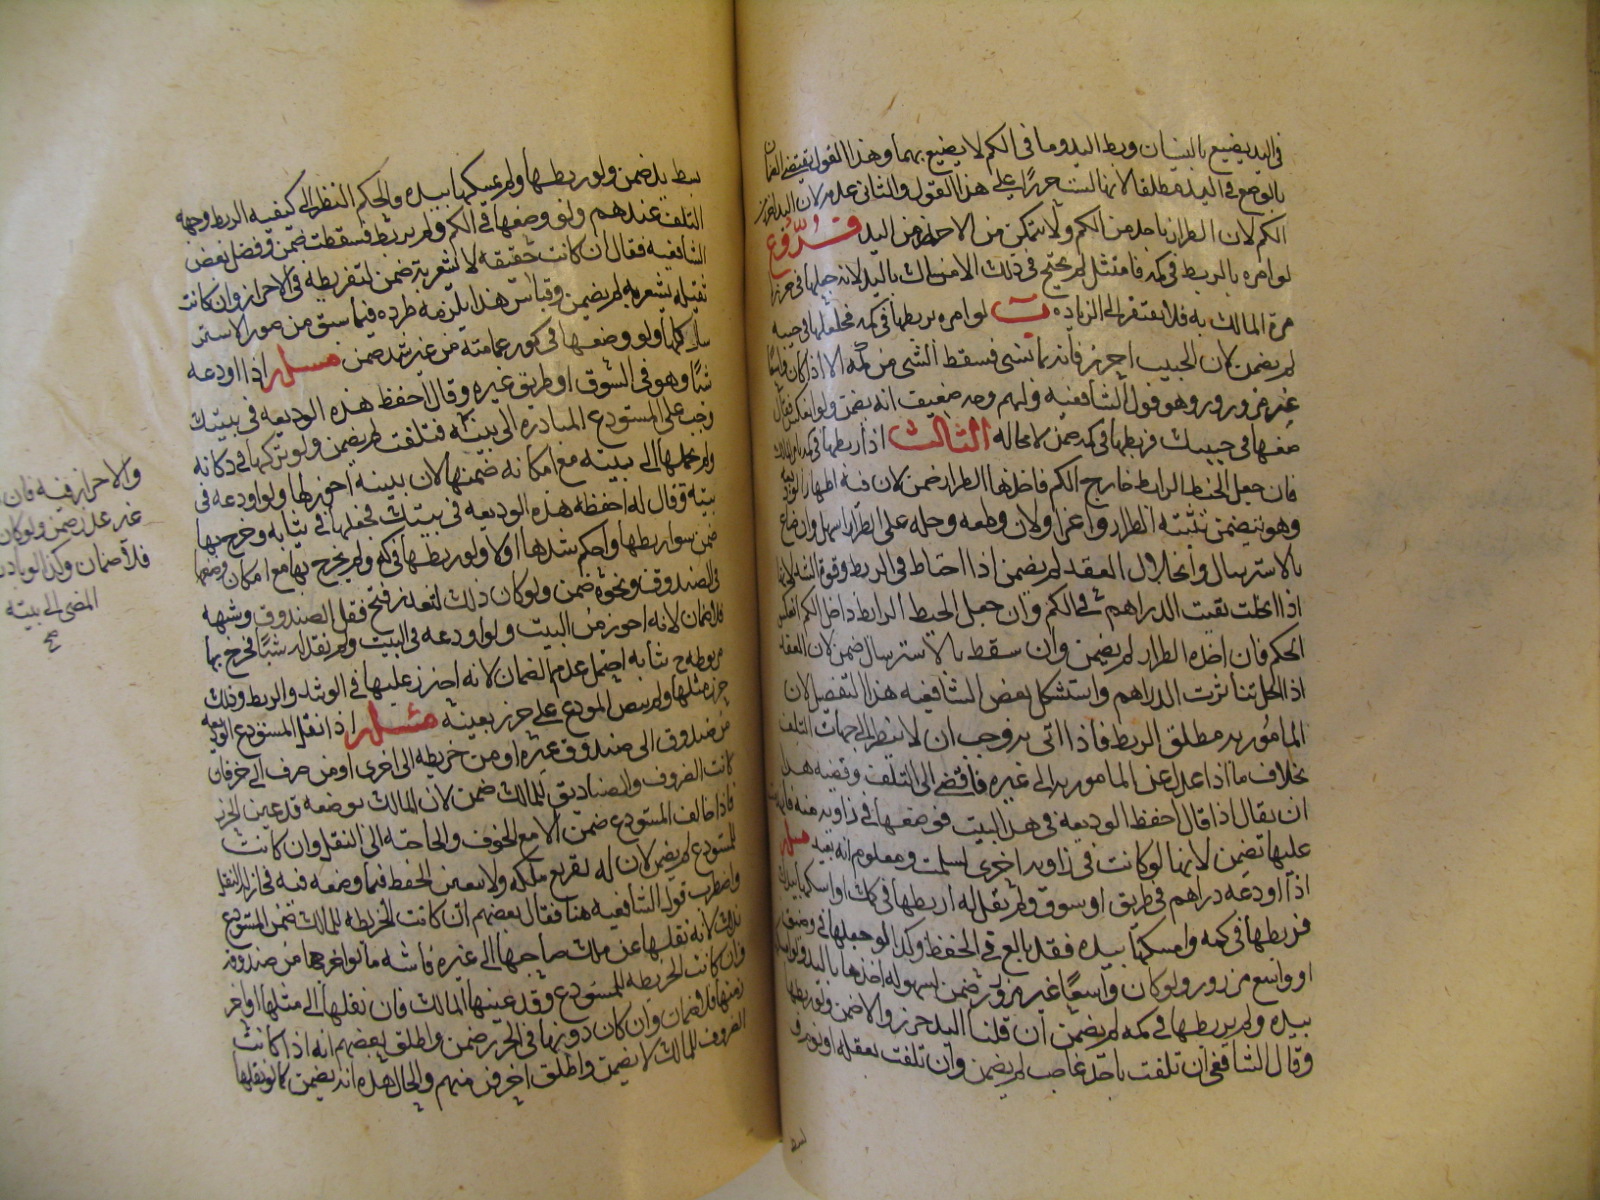 في اليد يضيع بالنسيان وبسط اليد وما في الكم لا يضيع بهما وهذا القول يقتضي الضمان
بالوضع في اليد مطلقا لانها ليست حرزا على هذا القول والثاني عدمه لان اليد احرز من
الكم لان الطرار ياخذ من الكم ولا يتمكن من الاخذ من اليد فروع
لو امره بالربط في كمه فامتثل لم يحتج في ذلك الامساك باليد لانه جعلها في حرز
من المالك به فلا يفتقر الى الزيادة ب لو امره بربطها في كمه فجعلها في جيبه
لم يضمن لان الجيب احرز فانه ربما نسي فسقط الشي من كمه الا اذا كان واسعا
غير مزرور وهو قول الشافعيه ولهم وجه ضعيف انه يضمن ولو انعكس فقال
ضعها في جيبك فربطها في كمه ضمن لا محاله الثالث اذا ربطها في كمه
فان جعل الخيط الرابط خارج الكم فاخذها الطرار ضمن لان فيه اظهار الوديعة
وهو يتضمن تنبيه الطرار واغراه ولان قطعه وحله على الطرار اسهل وان ضاع
بالاسترسال وانحلال العقد لم يضمن اذا احتاط في الربط وقوة الشد لانها
اذا انحلت بقيت الدراهم في الكم وان جعل الخيط الرابط داخل الكم انعكس
الحكم فان اخذه الطرار لم يضمن وان سقط بالاسترسال ضمن لان العقد
اذا انحل تناثرت الدراهم واستشكل بعض الشافعيه هذا التفصيل لان
المامور به مطلق الربط فاذا اتى به وجب ان لا ينظر الى جهات التلف
بخلاف ما اذا عدل عن المامور به الى غيره فافضى الى التلف وقضيه هذا
ان يقال اذا قال احفظ الوديعه في هذا البيت فوضعها في زاويه منه فانهدمت
عليها تضمن لانها لو كانت في زاويه اخرى لسلمت ومعلوم انه بعيد مسله
اذا اودعه دراهم في طريق او سوق ولم يقل له اربطها في كمك او امسكها بيدك
فربطها في كمه وامسكها بيده فقد بالغ في الحفظ وكذا لو جعلها في جيبه وهو ضيق
او واسع مزرور ولو كان واسعا غير مزرور ضمن لسهوله اخذها باليد ولو امسكها
بيده ولم يربطها في كمه لم يضمن ان قلنا اليد حرز والا ضمن ولو ربطها
وقال الشافعي ان تلفت باخذ غاصب لم يضمن وان تلفت بغفله او نوم
بسط
بسط يد ضمن ولو ربطها ولم يمسكها بيده والحكم النظر الى كيفيه الربط وجهه
التلف عندهم ولو وضعها في الكم ولم يربط فسقطت ضمن وفصل بعض
الشافعيه فقال ان كانت خفيفه لا يشعر بها ضمن لتفريطه في الاحراز وان كانت
ثقيله يشعر بها لم يضمن وقياس هذا يلزمه طرده فيما سبق من صور الاسترسال
كلها ولو وضعها في كور عمامته من غير شد ضمن مسله اذا اودعه
شيا وهو في السوق او طريق غيره وقال احفظ هذه الوديعه في بيتك
وجب على المستودع المبادره الى بيته فتلفت لم يضمن ولو تركها في دكانه
ولم يحملها الى بيته مع امكانه ضمنها لان بيته احرز لها ولو اودعه في
بيته وقال له احفظ هذه الوديعه في بيتك فجعلها في ثيابه وخرج بها
ضمن سوا ربطها واحكم شدها او لا ولو ربطها في كمه ولم يخرج بها مع امكان وضعها
في الصندوق ونحوه ضمن ولو كان ذلك لتعذر فتح قفل الصندوق وشبهه
فلا ضمان لانه احرز من البيت ولو اودعه في البيت ولم يقل له شيا فخرج بها
مربوطه في ثيابه احتمل عدم الضمان لانه احرز عليها في الوثد والربط وذلك
حرز مثلها ولم ينص المودع على حرز بعينه مسله اذا نقل المستودع الوديعه
من صندوق الى صندوق غيره او من خريطه الى اخرى او من ظرف الى ظرف فان
كانت الظروف والصناديق للمالك ضمن لان المالك بوضعه قد عين الحرز
فاذا خالف المستودع ضمن الا مع الخوف والحاجه الى النقل وان كانت
للمستودع لم يضمن لان له تفريغ ملكه ولا يتعين الحفظ فيما وضعه فيه فجاز له النقل
واضطرب قول الشافعيه هنا فقال بعضهم ان كانت الخريطه للمالك ضمن المستودع
بذلك لانه نقلها عن ملك صاحبها الى غيره فاشبه ما لو اخرجها من صندوقه
وان كانت الخريطه للمستودع وقد عينها المالك فان نقلها الى مثلها او احرز
منها فلا ضمان وان كان دونها في الحرز ضمن واطلق بعضهم انه اذا كانت
الظروف للمالك لا يضمن واطلق اخرون منهم والحال هذه انه يضمن كما لو نقلها
والاحراز فيه فان
عذر ضمن ولو كان
فلا ضمان وكذا لو بادر
المضي الى بيته
صح